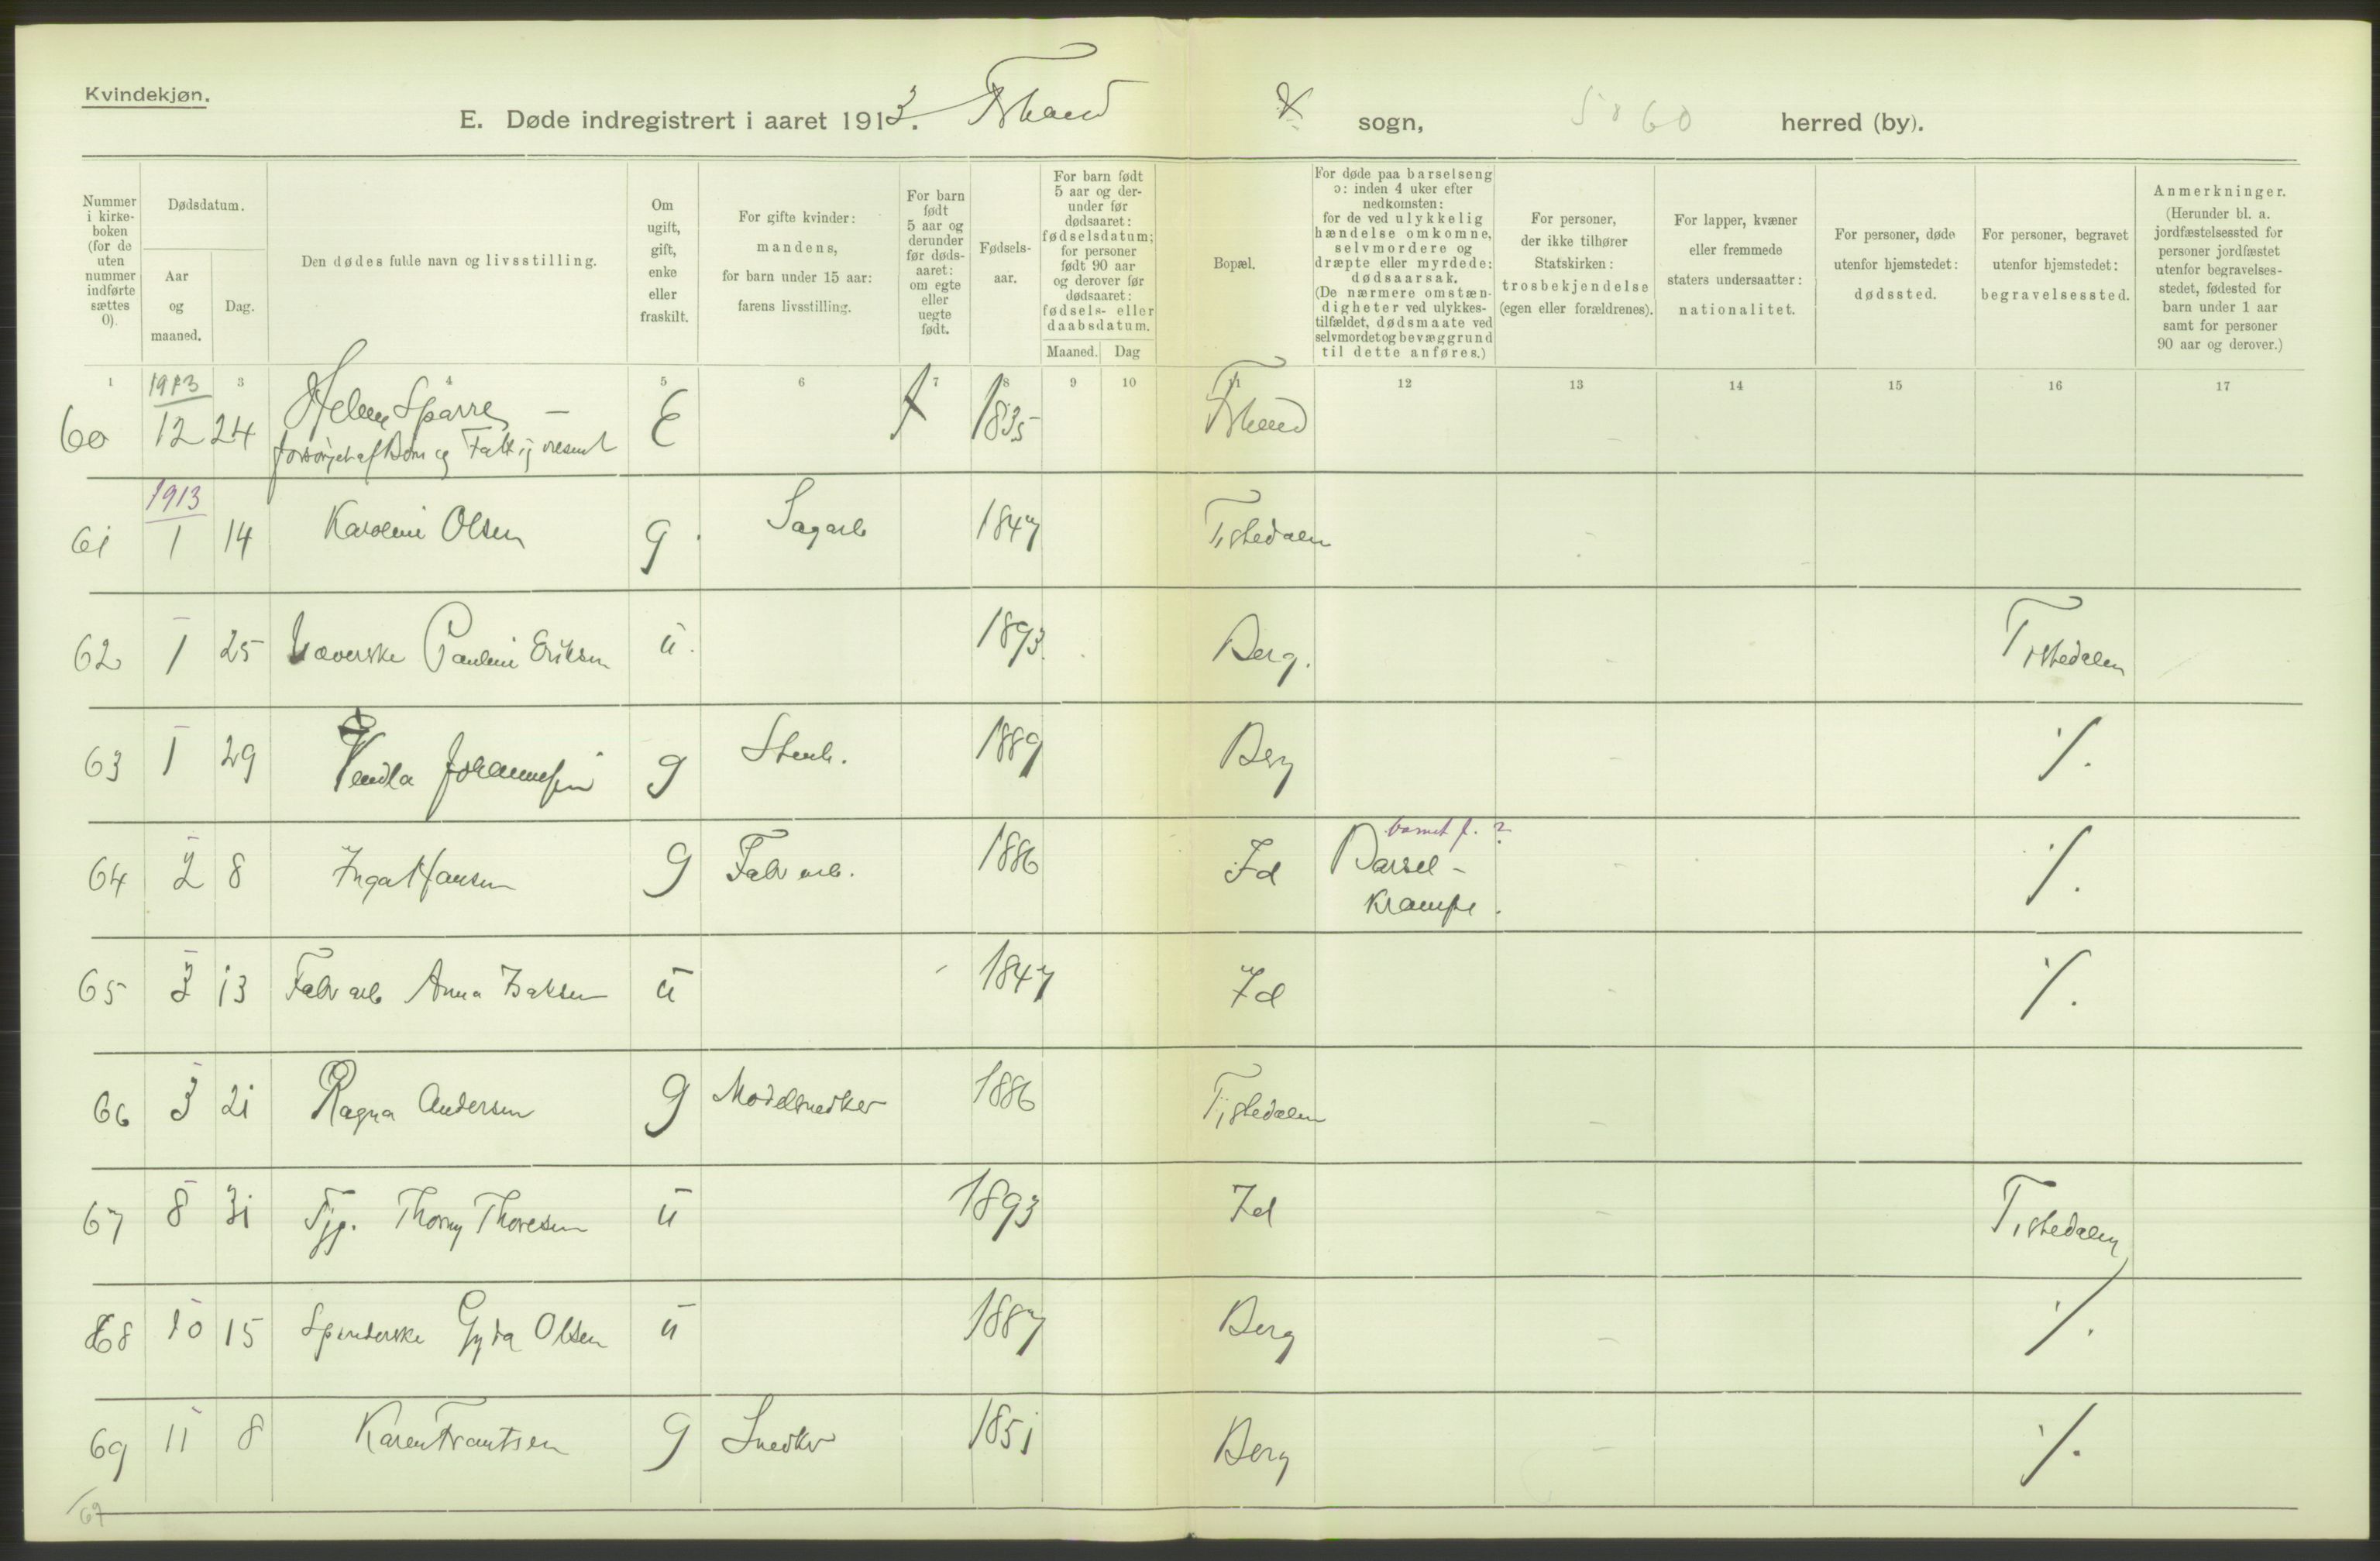 Kvindekjøn.
E. Døde indregistrert i aaret 1913. Frhald sogn, 5860 herred (by).
Nummer i kirke-boken (for de uten nummer indførte sættes 0).
Dødsdatum.
Aar og maaned.
Dag.
Den dødes fulde navn og livsstilling.
Om ugift, gift, enke eller fraskilt.
For gifte kvinder: mandens, for barn under 15 aar: farens livsstilling.
For barn født 5 aar og derunder før døds-aaret: om egte eller uegte født.
Fødsels-aar.
For barn født 5 aar og der-under før dødsaaret: fødselsdatum; for personer født 90 aar og derover før dødsaaret: fødsels- eller daabsdatum.
Maaned. Dag
Bopæl.
For døde paa barselseng ɔ: inden 4 uker efter nedkomsten: for de ved ulykkelig hændelse omkomne, selvmordere og dræpte eller myrdede: dødsaarsak. (De nærmere omstæn-digheter ved ulykkes-tilfældet, dødsmaate ved selvmordet og bevæggrund til dette anføres.)
For personer, der ikke tilhører Statskirken: trosbekjendelse (egen eller forældrenes).
For lapper, kvæner eller fremmede staters undersaatter: nationalitet.
For personer, døde utenfor hjemstedet: dødssted.
For personer, begravet utenfor hjemstedet: begravelsessted.
Anmerkninger. (Herunder bl. a. jordfæstelsessted for personer jordfæstet utenfor begravelses-stedet, fødested for barn under 1 aar samt for personer 90 aar og derover.)
1 3 4 5 6 7 8 9 10 11 12 13 14 15 16 17
1913
60 12 24 Helene Sparre — E 1835 Frhald
forsørget af Børn og Fattigvesenet
1913
61 1 14 Karoline Olsen g. Sagarb 1847 Tistedalen
62 1 25 Væverske Pauline Eriksen u. 1893. Berg. Tistedalen
63 1 29 Vendla Johannessen g Stenh. 1889 Berg ·/.
64 2 8 Inga Hansen g Fabr arb. 1886 Id barnet f. ? Barsel- ·/.
krampe.
65 3 13 Fabr arb Anna Isaksen u 1847 Id ·/.
66 3 21 Ragna Andersen g Modelsnedker 1886 Tistedalen
67 8 31 Tjp. Thorny Thoresen u 1893 Id Tistedalen
68 10 15 Spinderske Gyda Olsen u 1887 Berg ·/.
69 11 8 Karen Frantsen g Snedker 1851 Berg ·/.
/69